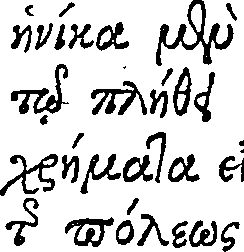 ἡνίκα μὲν
τοῦ πλήθους
χρήματα εἰ
τῆς πόλεως